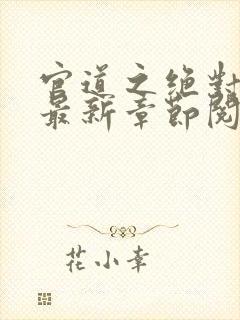 官道之绝对
最新章节阅
花小幸